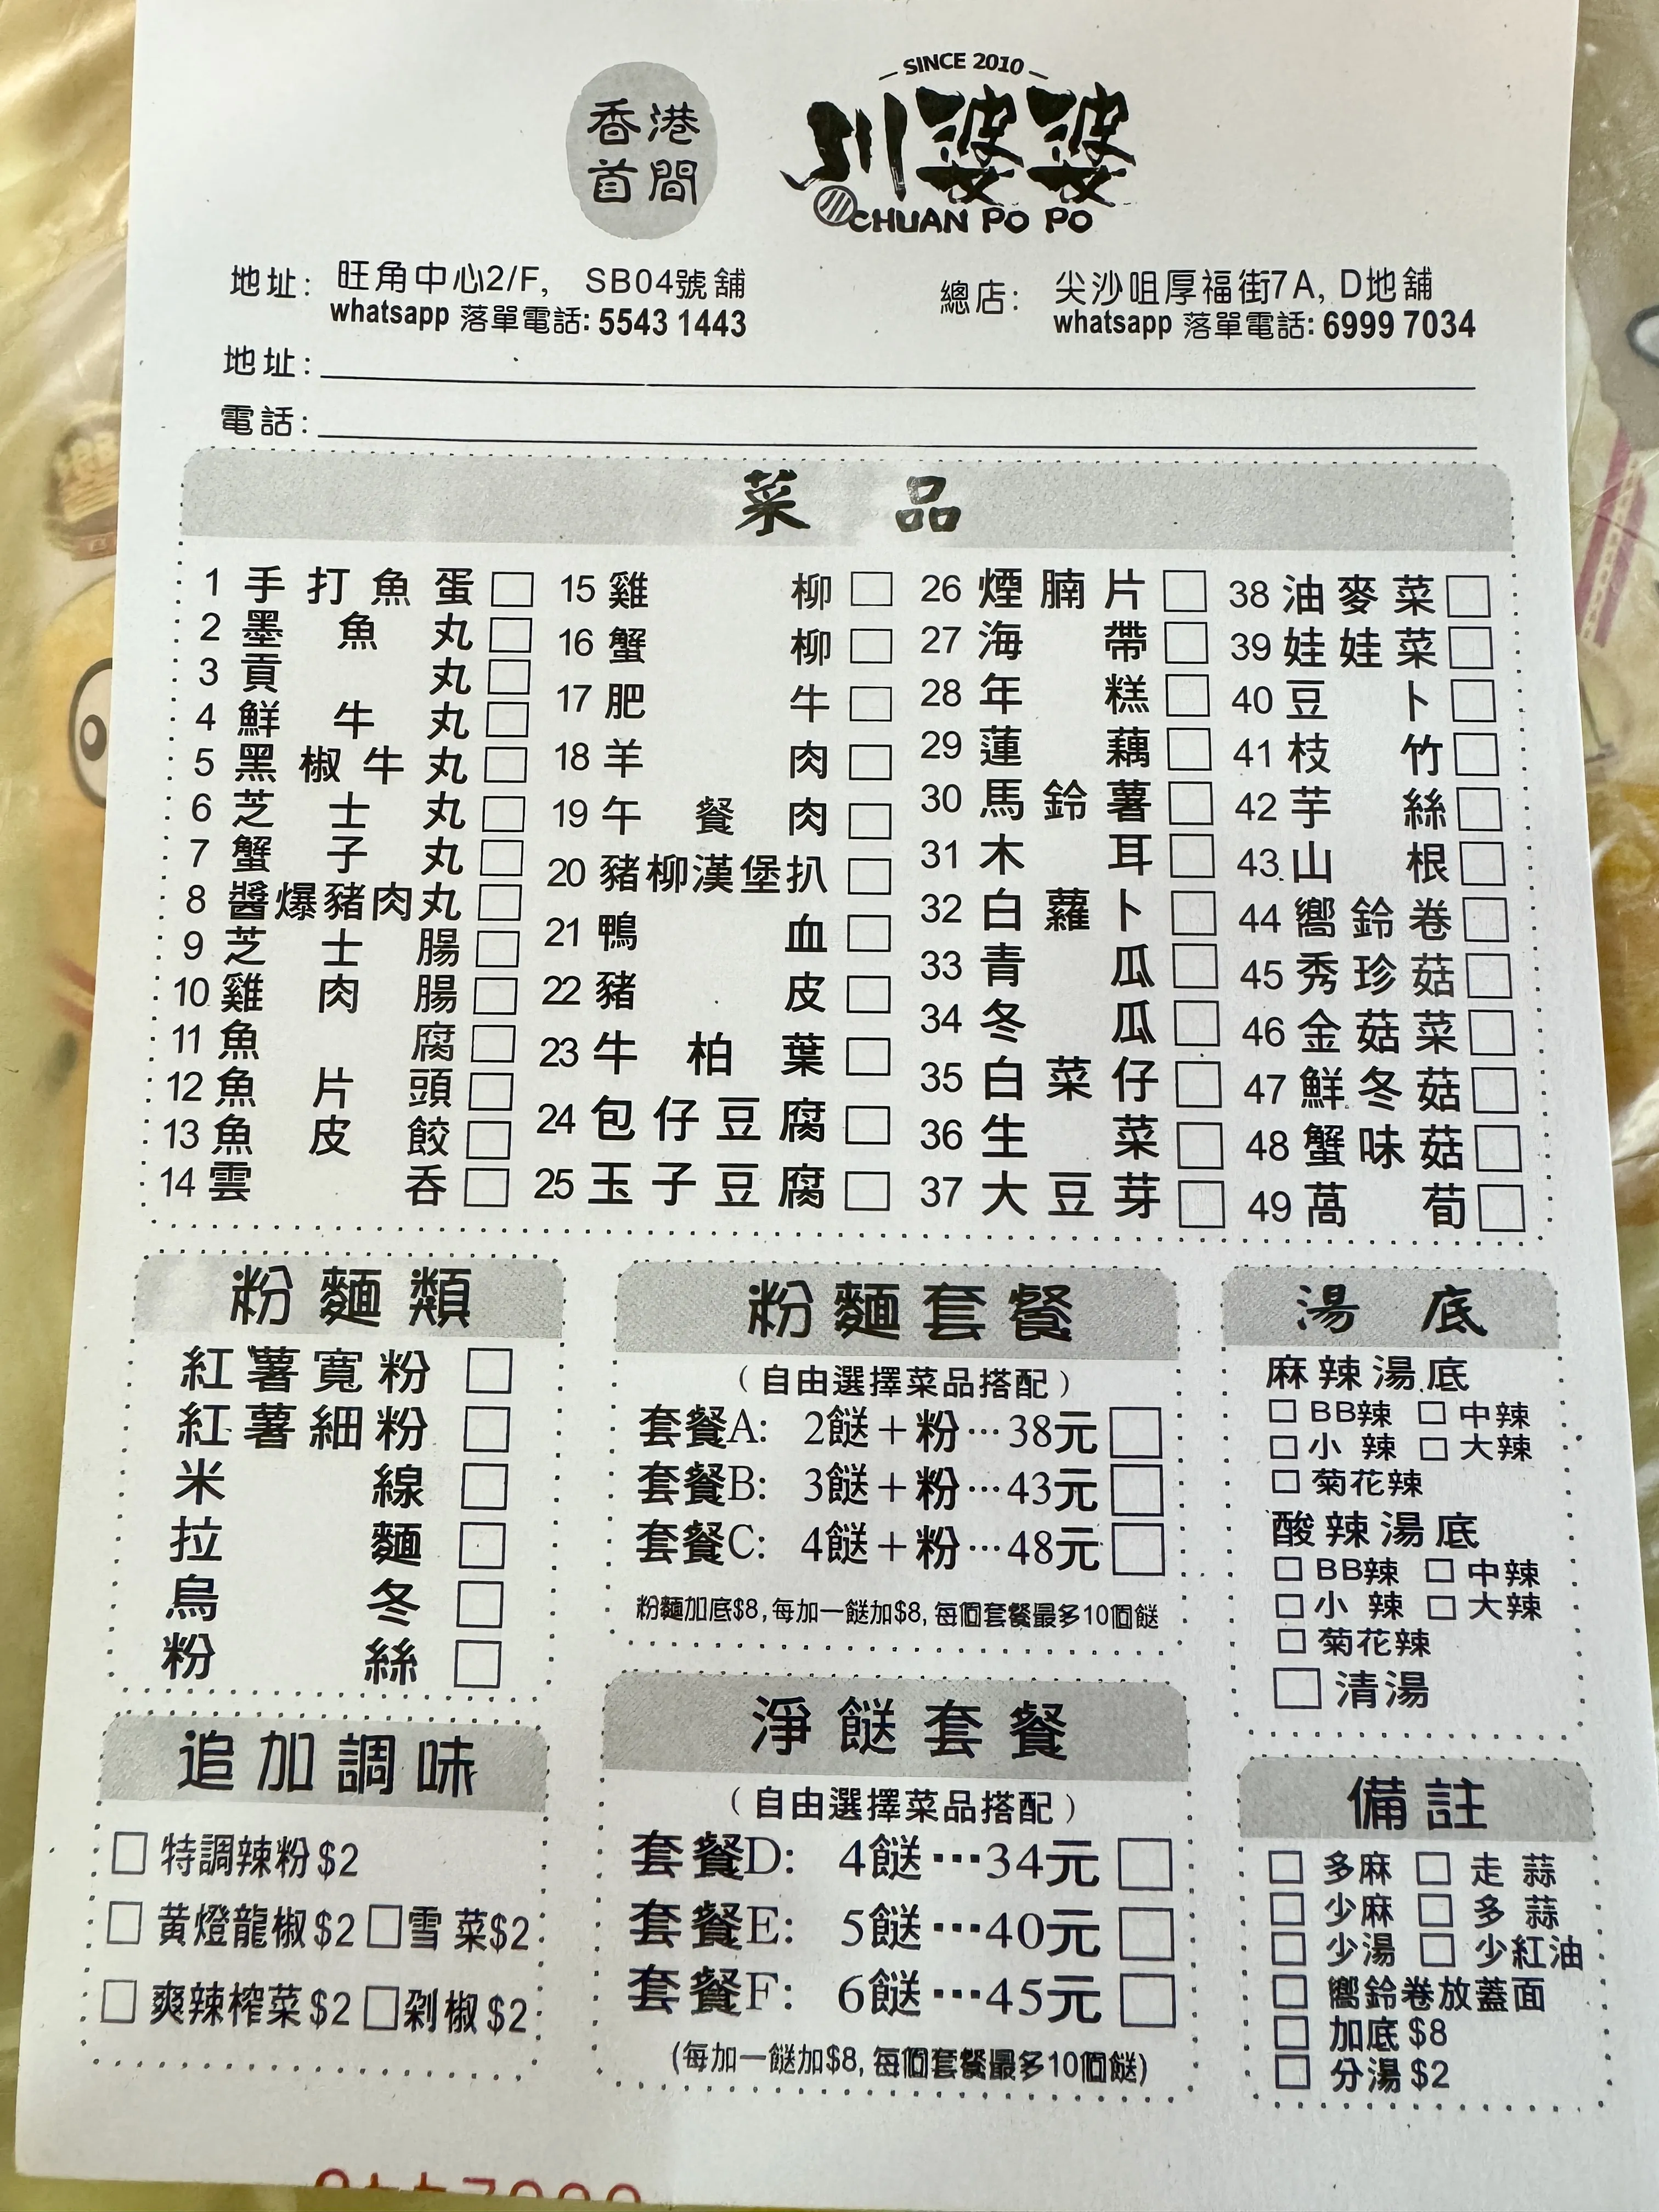 SINCE 2010
香港
首間
川婆婆
CHUAN PO PO
地址： 旺角中心2/F, SB04號舖
whatsapp 落單電話: 5543 1443
總店： 尖沙咀厚福街7A, D地舖
whatsapp 落單電話: 6999 7034
地址：
電話：
菜品
1 手打魚蛋
2 墨魚丸
3 貢丸
4 鮮牛丸
5 黑椒牛丸
6 芝士丸
7 蟹子丸
8 醬爆豬肉丸
9 芝士腸
10 雞肉腸
11 魚腐
12 魚片頭
13 魚皮餃
14 雲吞
15 雞柳
16 蟹柳
17 肥牛
18 羊肉
19 午餐肉
20 豬柳漢堡扒
21 鴨血
22 豬皮
23 牛柏葉
24 包仔豆腐
25 玉子豆腐
26 煙腩片
27 海帶
28 年糕
29 蓮藕
30 馬鈴薯
31 木耳
32 白蘿卜
33 青瓜
34 冬瓜
35 白菜仔
36 生菜
37 大豆芽
38 油麥菜
39 娃娃菜
40 豆卜
41 枝竹
42 芋絲
43 山根
44 嚮鈴卷
45 秀珍菇
46 金菇菜
47 鮮冬菇
48 蟹味菇
49 萵荀
粉麵類
紅薯寬粉
紅薯細粉
米線
拉麵
烏冬
粉絲
粉麵套餐
（自由選擇菜品搭配）
套餐A: 2餸＋粉…38元
套餐B: 3餸＋粉…43元
套餐C: 4餸＋粉…48元
粉麵加底$8, 每加一餸加$8, 每個套餐最多10個餸
湯底
麻辣湯底
BB辣 中辣
小辣 大辣
菊花辣
酸辣湯底
BB辣 中辣
小辣 大辣
菊花辣
清湯
追加調味
特調辣粉$2
黃燈龍椒$2 雪菜$2
爽辣榨菜$2 剁椒$2
淨餸套餐
（自由選擇菜品搭配）
套餐D: 4餸…34元
套餐E: 5餸…40元
套餐F: 6餸…45元
(每加一餸加$8, 每個套餐最多10個餸)
備註
多麻 走蒜
少麻 多蒜
少湯 少紅油
嚮鈴卷放蓋面
加底$8
分湯$2